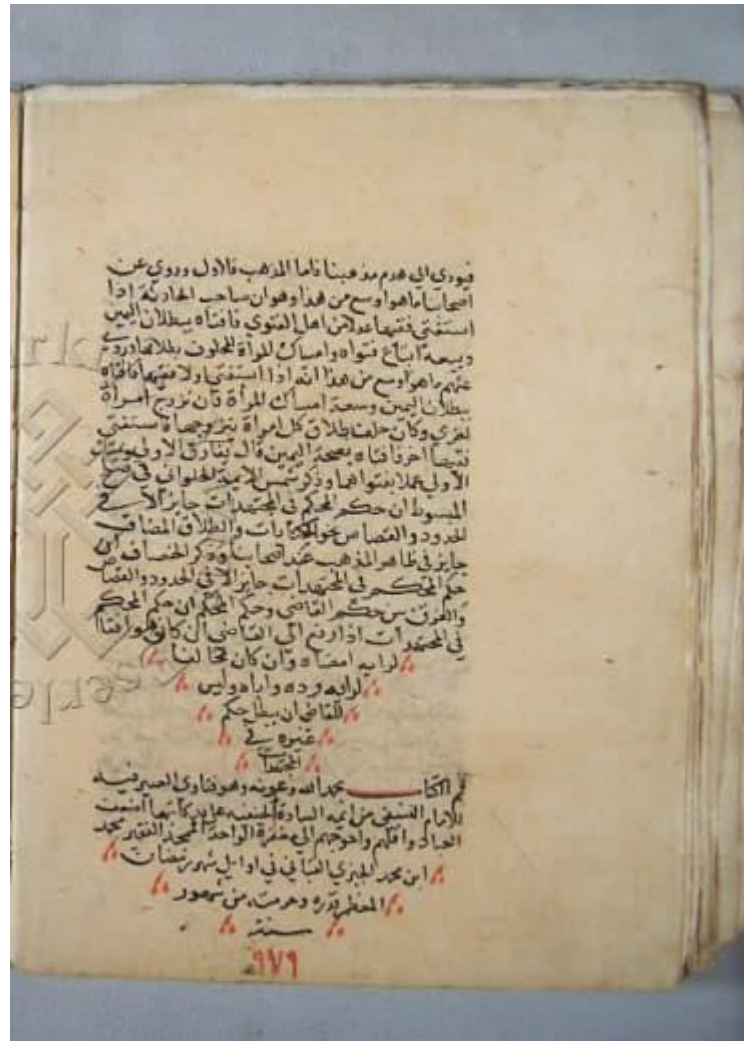 فيودي الي هدم مذهبنا فاما المذهب فالاول وروي عن
اصحابنا ما هو اوسع من هذا وهو ان صاحب الحادثة اذا
استفتي فقيها عدلا من اهل الفتوي فافتاه ببطلان اليمين
وسعه اتباع فتواه وامساك المراة المحلوف بطلاقها وروي
عنهم ما هو اوسع من هذا انه اذا استفتي اولا فقيها فافتاه
ببطلان اليمين وسعه امساك المراة فان تزوج امراة
اخري وكان حلف بطلاق كل امراة يتزوجها فاستفتي
فقيها اخر فافتاه بصحة اليمين قال يفارق الاخري ويمسك
الاولي عملا بفتواهما وذكر شمس الايمة الحلواني في
المبسوط ان حكم المحكم في المجتهدات جايز الا في
الحدود والقصاص نحو الكنايات والطلاق المضاف
جايز في ظاهر المذهب عند اصحابنا وذكر الخصاف ان
حكم المحكم في المجتهدات جايز الا في الحدود والقصاص
والفرق بين حكم القاضي وحكم المحكم ان حكم المحكم
في المجتهدات اذا رفع الي القاضي ان كان موافقا
لرايه امضاه وان كان مخالفا
لرايه رده واباه وليس
للقاضي ان يبطل حكم
غيره في
المجتهدات
تم الكتاب بحمد الله وعونه وهو فتاوي
للامام النسفي من ايمة السادة الحنفيه علي يد كاتبها اضعف
العباد واقلهم واحوجهم الي مغفرة الواحد الفقير محمد
ابن محمد في اوايل شهر رمضان
المعظم قدره وحرمته من شهور
سنة
٩٧٩